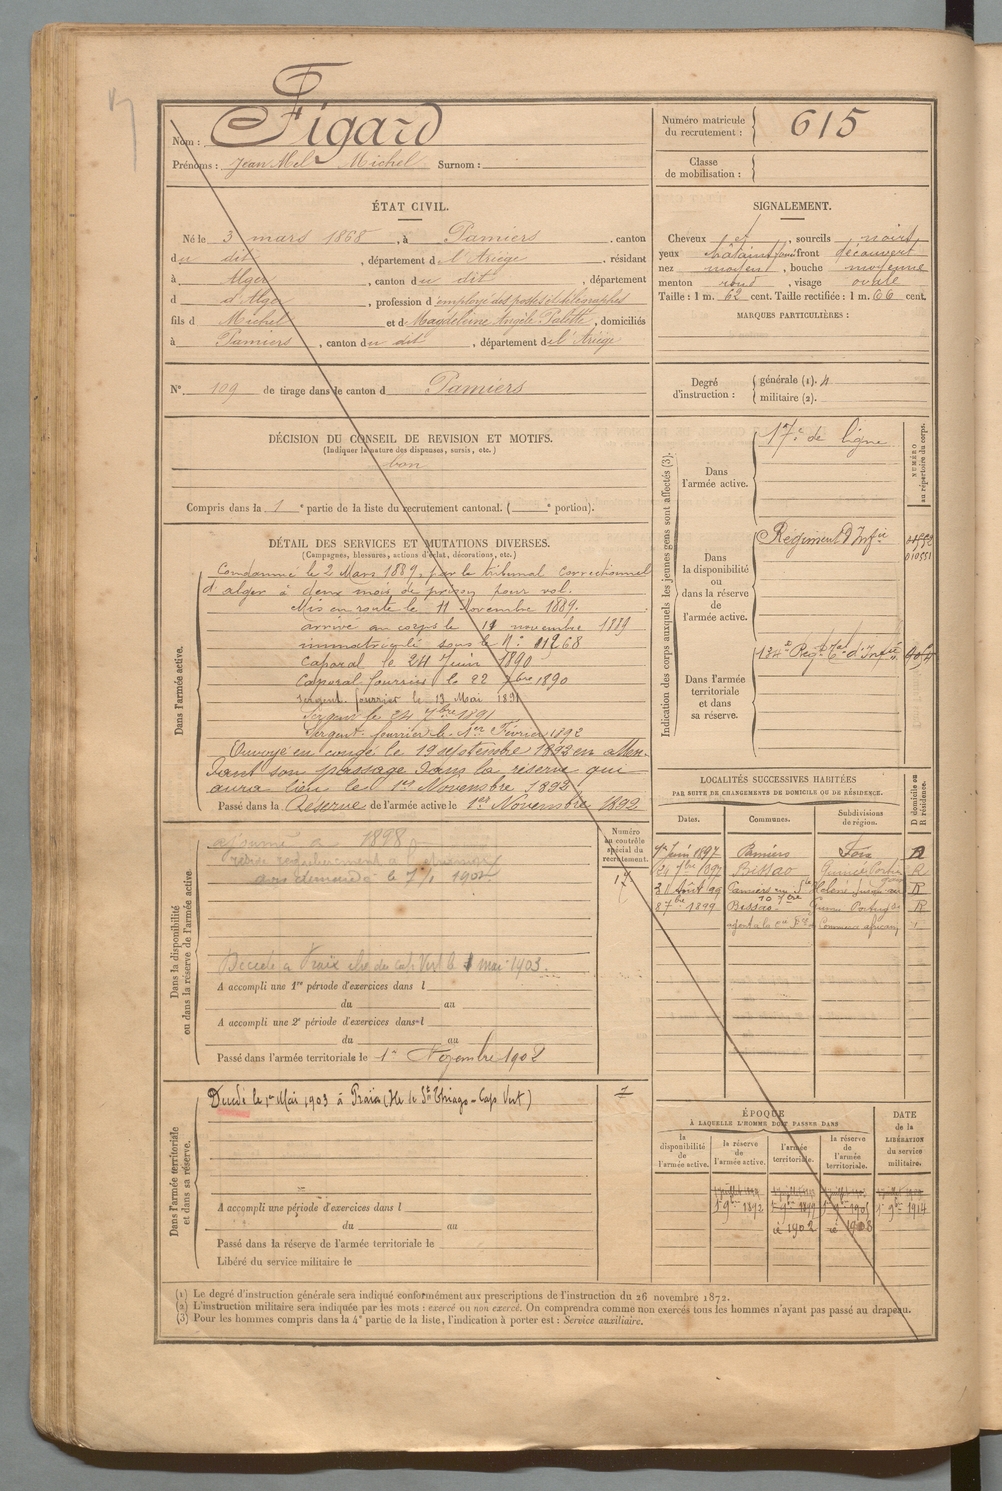 Nom : Figard
Prénoms : Jean Mel Michel Surnom :
Numéro matricule du recrutement : 615
Classe de mobilisation :
ÉTAT CIVIL.
Né le 3 mars 1868, à Pamiers, canton
du dit, département d l'Ariège, résidant
à Alger, canton du dit, département
d d'Alger, profession d'employé des postes et télégraphes
fils d Michel et d Magdeleine Angèle Palette, domiciliés
à Pamiers, canton du dit, département de l'Ariège
N° 109 de tirage dans le canton d Pamiers
SIGNALEMENT.
Cheveux et, sourcils noirs
yeux châtains front découvert
nez moyen, bouche moyenne
menton rond, visage ovale
Taille : 1 m. 62 cent. Taille rectifiée : 1 m. 66 cent.
MARQUES PARTICULIÈRES :
Degré d'instruction : générale (1). 4
militaire (2).
DÉCISION DU CONSEIL DE REVISION ET MOTIFS.
(Indiquer la nature des dispenses, sursis, etc.)
bon
Compris dans la 1e partie de la liste du recrutement cantonal. ( e portion).
DÉTAIL DES SERVICES ET MUTATIONS DIVERSES.
(Campagnes, blessures, actions d'éclat, décorations, etc.)
Dans l'armée active.
Condamné le 2 Mars 1889, par le tribunal correctionnel
d'alger à deux mois de prison pour vol.
Mis en route le 11 Novembre 1889.
arrivé au corps le 11 novembre 1889
immatriculé sous le N°
Caporal le 24 Juin 1890
Caporal fourrier le 22 7bre 1890
Sergent fourrier le 13 Mai 1891
Sergent le 24 7bre 1891
Sergent fourrier le 1er Février 1892
Envoyé en congé le 19 septembre 1892 en atten-
dant son passage dans la réserve qui
aura lieu le 1er Novembre 1892
Passé dans la Réserve de l'armée active le 1er Novembre 1892
Indication des corps auxquels les jeunes gens sont affectés (3).
NUMÉRO au répertoire du corps.
Dans l'armée active.
17e de ligne
Dans la disponibilité ou dans la réserve de l'armée active.
Régiment d'Infie
010551
Dans l'armée territoriale et dans sa réserve.
134e Régt Tal d'Infie
LOCALITÉS SUCCESSIVES HABITÉES
PAR SUITE DE CHANGEMENTS DE DOMICILE OU DE RÉSIDENCE.
D domicile ou R résidence.
Dates. Communes. Subdivisions de région.
Juin 1897 Pamiers Foix D
7bre 1897 Bissao Guinée R
31 Août 99 Pamiers R
8 7bre 1899 Bissao Guinée R
Dans la disponibilité ou dans la réserve de l'armée active
Numéro au contrôle spécial du recrutement.
ajourné à 1898
17
Décédé à Praïa du cap Vert le 1 mai 1903.
A accompli une 1re période d'exercices dans l
du au
A accompli une 2e période d'exercices dans l
du au
Passé dans l'armée territoriale le 1er Novembre 1902
Dans l'armée territoriale et dans sa réserve.
Décédé le 1er Mai 1903 à Praïa (Ile de St Thiago - Cap Vert)
A accompli une période d'exercices dans l
du au
Passé dans la réserve de l'armée territoriale le
Libéré du service militaire le
ÉPOQUE
À LAQUELLE L'HOMME DOIT PASSER DANS
DATE de la LIBÉRATION du service militaire.
la disponibilité de l'armée active.
la réserve de l'armée active.
l'armée territoriale.
la réserve de l'armée territoriale.
1er 9bre 1892 1er 9bre 1899 1er 9bre 1905 1er 9bre 1914
id 1902 id 1908
(1) Le degré d'instruction générale sera indiqué conformément aux prescriptions de l'instruction du 26 novembre 1872.
(2) L'instruction militaire sera indiquée par les mots : exercé ou non exercé. On comprendra comme non exercés tous les hommes n'ayant pas passé au drapeau.
(3) Pour les hommes compris dans la 4e partie de la liste, l'indication à porter est : Service auxiliaire.